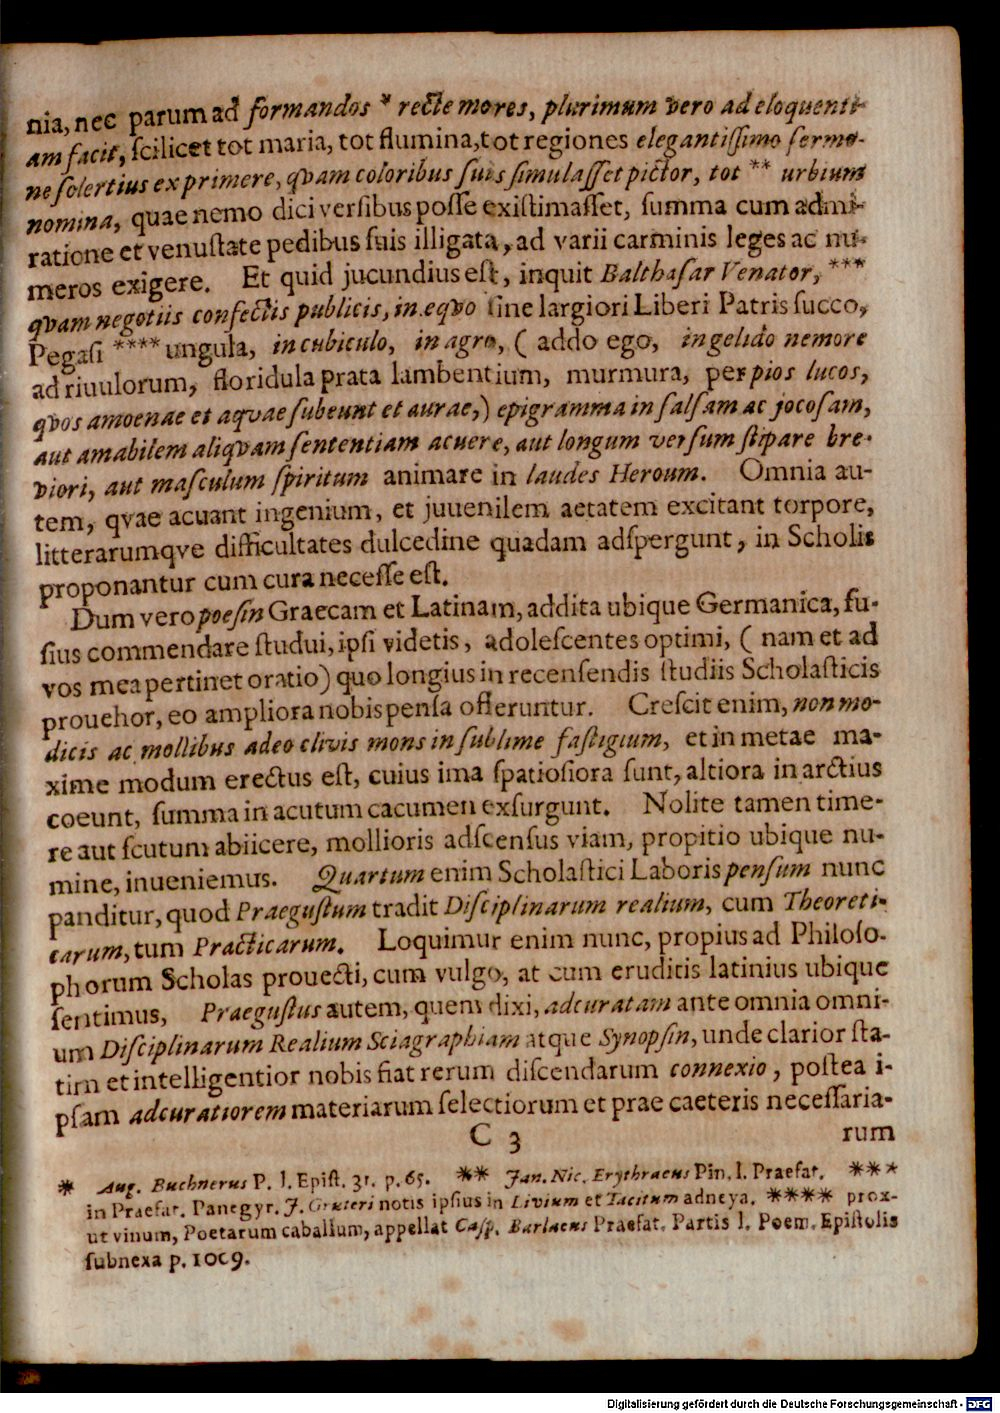 nia, nec parum ad formandos * recte mores, plurimum vero ad eloquenti-
am facit, ſcilicet tot maria, tot flumina, tot regiones elegantiſſimo ſermo-
ne ſolertius exprimere, qvam coloribus ſuis ſimulaſſet pictor, tot ** urbium
nomina, quae nemo dici verſibus poſſe exiſtimaſſet, ſumma cum admi-
ratione et venuſtate pedibus ſuis illigata, ad varii carminis leges ac nu-
meros exigere. Et quid jucundius eſt, inquit Balthaſar Venator, ***
qvam negotiis confectis publicis, in eqvo ſine largiori Liberi Patris ſucco,
Pegaſi **** ungula, in cubiculo, in agro, ( addo ego, in gelido nemore
ad riuulorum, floridula prata lambentium, murmura, per pios lucos,
qvos amoenae et aqvae ſubeunt et aurae,) epigramma in ſalſam ac jocoſam,
aut amabilem aliqvam ſententiam acuere, aut longum verſum ſtipare bre-
viori, aut maſculum ſpiritum animare in laudes Heroum. Omnia au-
tem, qvae acuant ingenium, et juuenilem aetatem excitant torpore,
litterarumqve difficultates dulcedine quadam adſpergunt, in Scholis
proponantur cum cura neceſſe eſt.
Dum vero poeſin Graecam et Latinam, addita ubique Germanica, fu-
ſius commendare ſtudui, ipſi videtis, adoleſcentes optimi, ( nam et ad
vos mea pertinet oratio) quo longius in recenſendis ſtudiis Scholaſticis
prouehor, eo ampliora nobis penſa offeruntur. Creſcit enim, non mo-
dicis ac mollibus adeo clivis mons in ſublime faſtigium, et in metae ma-
xime modum erectus eſt, cuius ima ſpatioſiora ſunt, altiora in arctius
coeunt, ſumma in acutum cacumen exſurgunt. Nolite tamen time-
re aut ſcutum abiicere, mollioris adſcenſus viam, propitio ubique nu-
mine, inueniemus. Quartum enim Scholaſtici Laboris penſum nunc
panditur, quod Praeguſtum tradit Diſciplinarum realium, cum Theoreti-
carum, tum Practicarum. Loquimur enim nunc, propius ad Philoſo-
phorum Scholas prouecti, cum vulgo, at cum eruditis latinius ubique
ſentimus, Praeguſtus autem, quem dixi, adcuratam ante omnia omni-
um Diſciplinarum Realium Sciagraphiam atque Synopſin, unde clarior ſta-
tim et intelligentior nobis fiat rerum diſcendarum connexio, poſtea i-
pſam adcuratiorem materiarum ſelectiorum et prae caeteris neceſſaria-
C 3 rum
* Aug. Buchnerus P. I. Epiſt. 31. p. 65. ** Jan. Nic. Erythraeus Pin. I. Praefat. ***
in Praefat. Panegyr. J. Gruteri notis ipſius in Livium et Tacitum adnexa. **** prox-
ut vinum, Poetarum caballum, appellat Caſp. Barlaeus Praefat. Partis I. Poem. Epiſtolis
ſubnexa p. 1009.
Digitalisierung gefördert durch die Deutsche Forschungsgemeinschaft - DFG